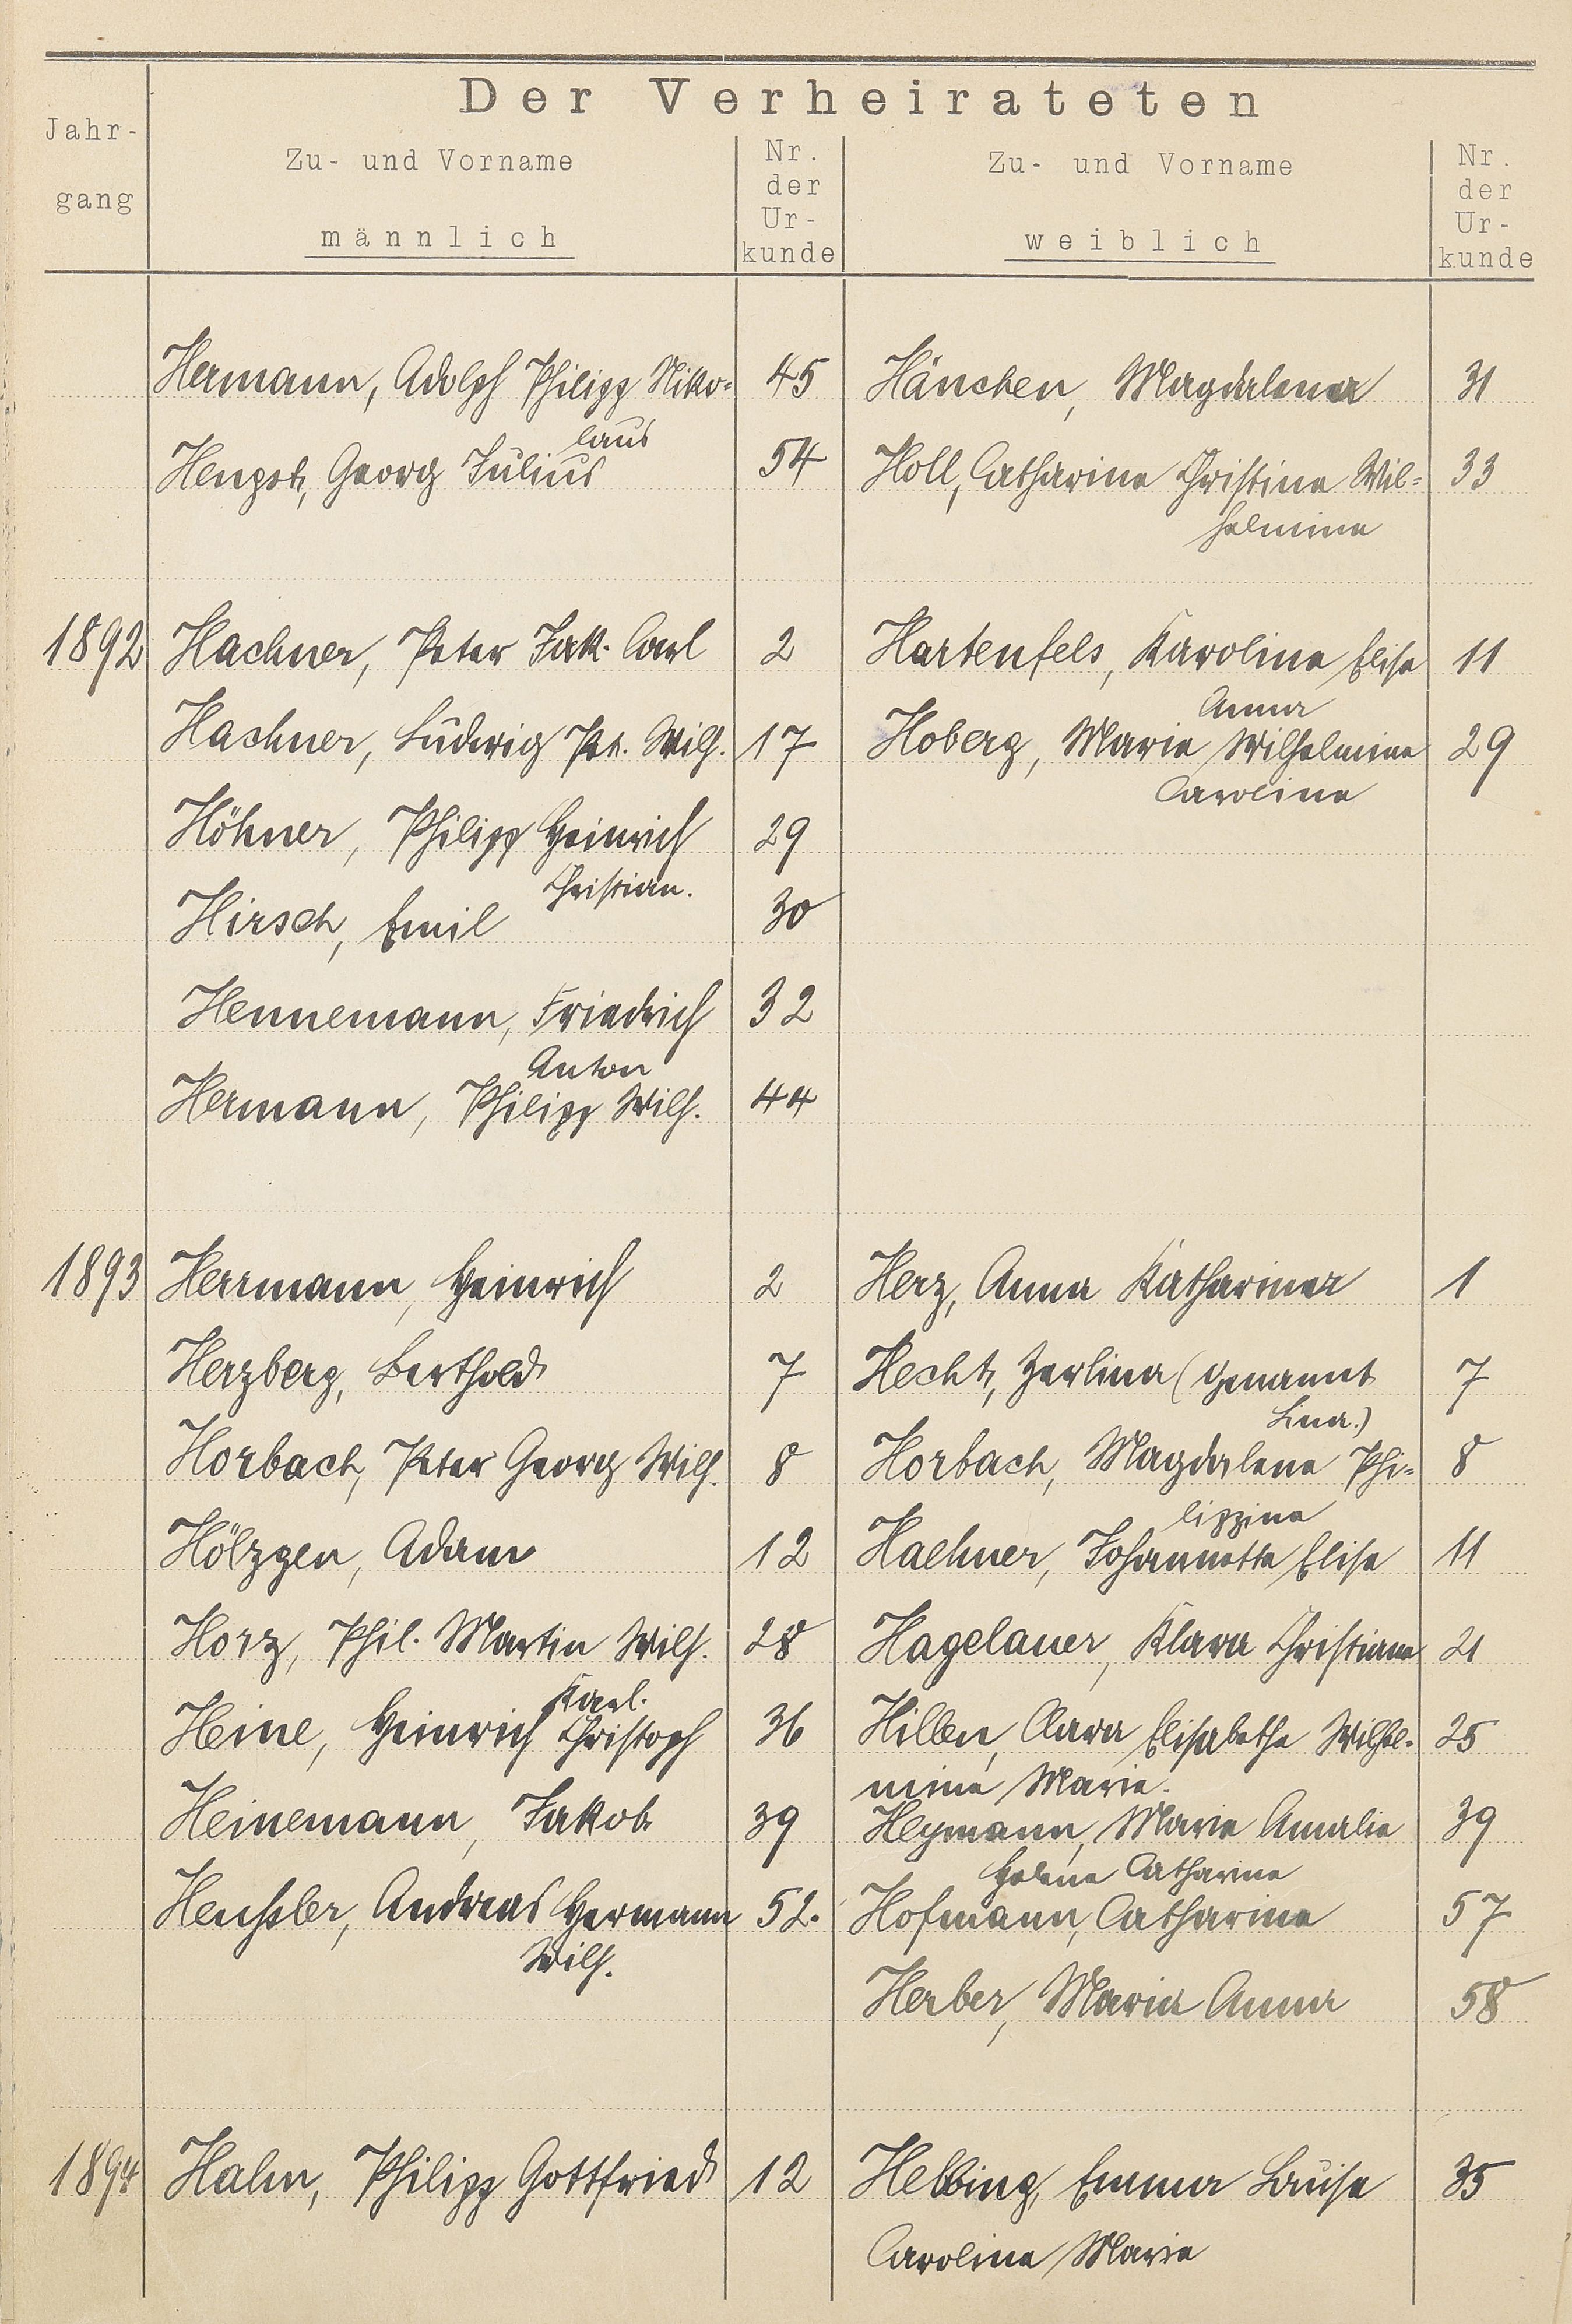 Der Verheirateten
Jahr-
gang
Zu- und Vorname
männlich
Nr.
der
Ur-
kunde
Zu- und Vorname
weiblich
Nr.
der
Ur-
kunde
Hermann, Adolph Philipp Niko= 45 Hänchen, Magdalena 31
laus
Hengst, Georg Julius 54 Holl, Catharine Christine Wil= 33
helmine
1892 Hachner, Peter Jak. Carl 2 Hartenfels, Karoline Elise 11
Anna
Hachner, Ludwig Pet. Wilh. 17 Hoberg, Marie Wilhelmine 29
Caroline
Höhner, Philipp Heinrich 29
Christian.
Hirsch, Emil 30
Hennemann, Friedrich 32
Anton
Hermann, Philipp Wilh. 44
1893 Herrmann, Heinrich 2 Herz, Anna Katharina 1
Herzberg, Berthold 7 Hecht, Zerlina (genannt 7
Lina.)
Horbach, Peter Georg Wilh. 8 Horbach, Magdalene Phi= 8
lippine
Hölzgen, Adam 12 Haehner, Johannette Elise 11
Horz, Phil. Martin Wilh. 28 Hagelauer, Klara Christiane 21
Karl.
Heine, Heinrich Christoph 36 Hillen, Clara Elisabethe Wilhel- 25
mine Marie.
Heinemann, Jakob 39 Heymann, Marie Amalie 39
Helene Catharine
Heußler, Andreas Hermann 52. Hofmann, Catharine 57
Wilh.
Herber, Maria Anna 58
1894 Hahn, Philipp Gottfried 12 Helbing, Emma Louise 35
Caroline Marie